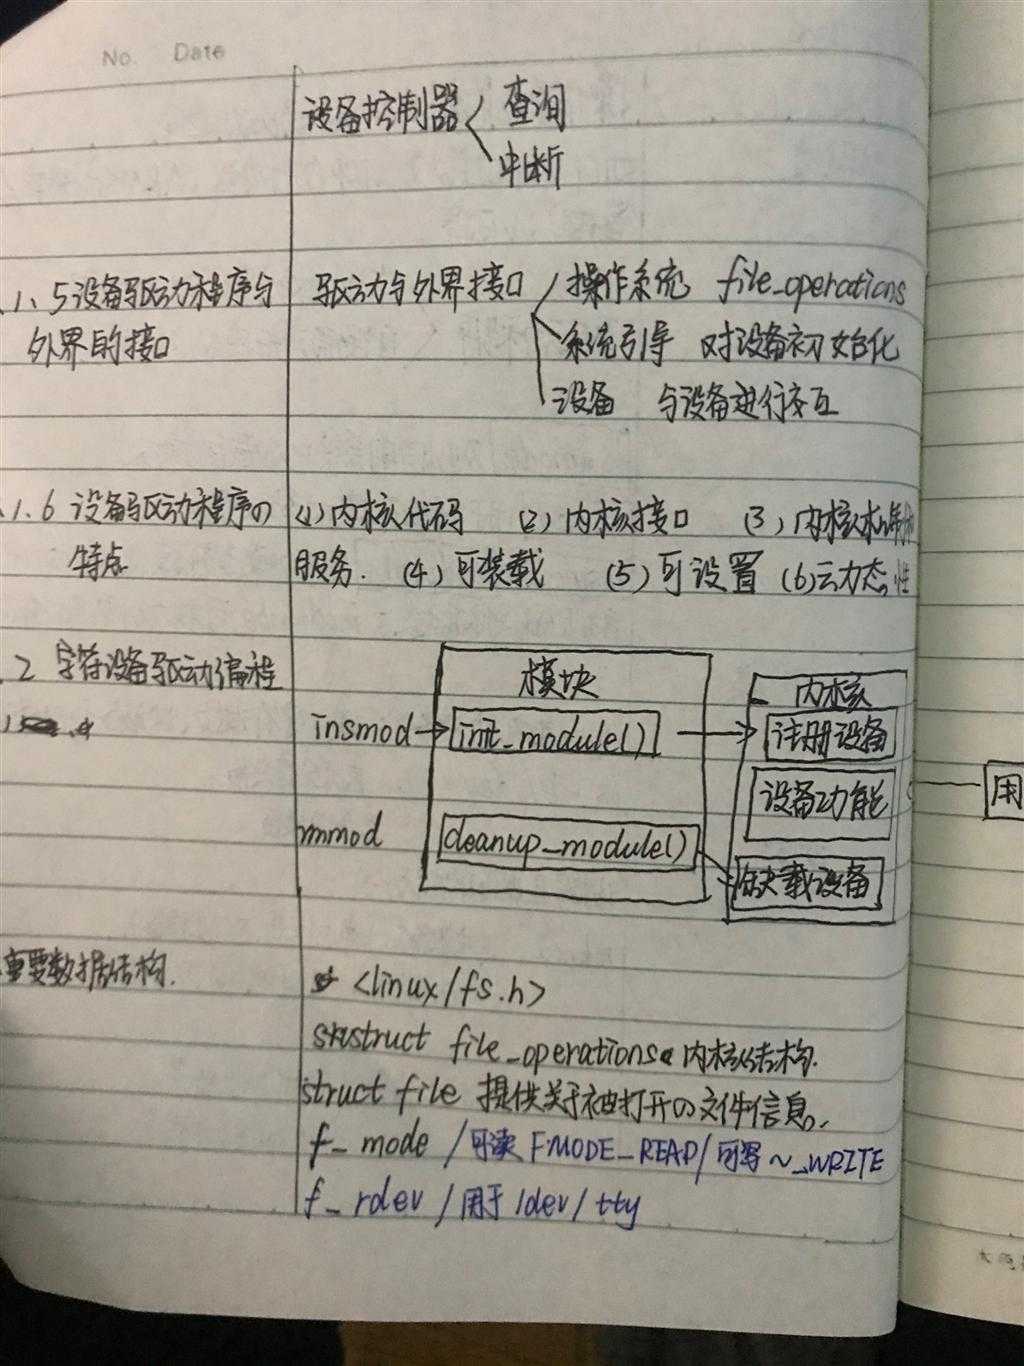 No. Date
设备控制器 查询
中断
1.5设备驱动程序与
外界的接口
驱动与外界接口 操作系统 file_operations
系统引导 对设备初始化
设备 与设备进行交互
1.6 设备驱动程序の
特点
(1)内核代码 (2)内核接口 (3)内核机制和
服务. (4)可装载 (5)可设置 (6)动态性
2 字符设备驱动编程
模块
内核
insmod init_module() 注册设备
设备功能
用
rmmod cleanup_module() 卸载设备
重要数据结构.
<linux/fs.h>
struct file_operations 内核结构.
struct file 提供关于被打开の文件信息.
f_mode /可读 FMODE_READ/可写 ~_WRITE
f_rdev /用于 /dev/tty